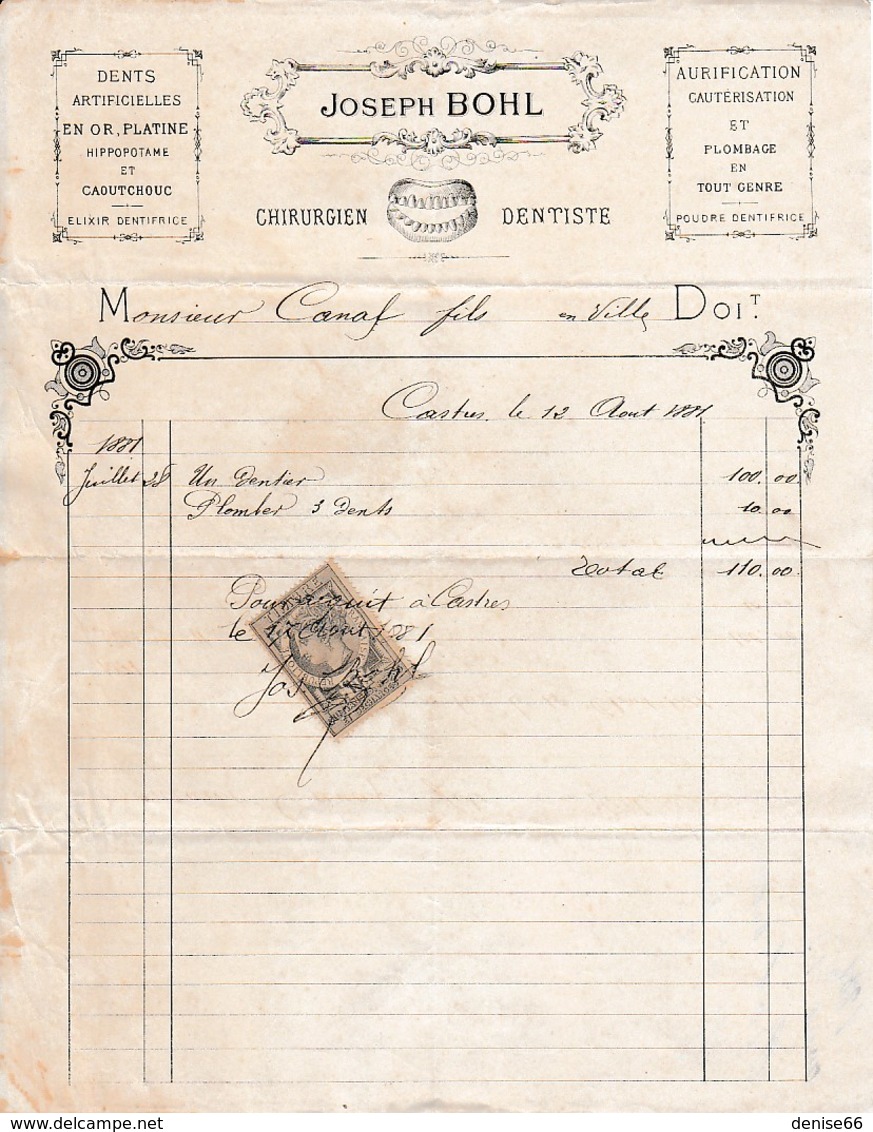 DENTS
ARTIFICIELLES
EN OR, PLATINE
HIPPOPOTAME
ET
CAOUTCHOUC
ELIXIR DENTIFRICE
JOSEPH BOHL
CHIRURGIEN DENTISTE
AURIFICATION
CAUTÉRISATION
ET
PLOMBAGE
EN
TOUT GENRE
POUDRE DENTIFRICE
Monsieur Canaf fils en Ville DOIT.
Castres, le 12 Aout 1881
1881
Juillet 28 Un dentier 100.00
Plomber 3 dents 10.00
Total 110.00
Pour acquit à Castres
le 12 Aout 1881
Jos. Bohl
TIMBRE
denise66